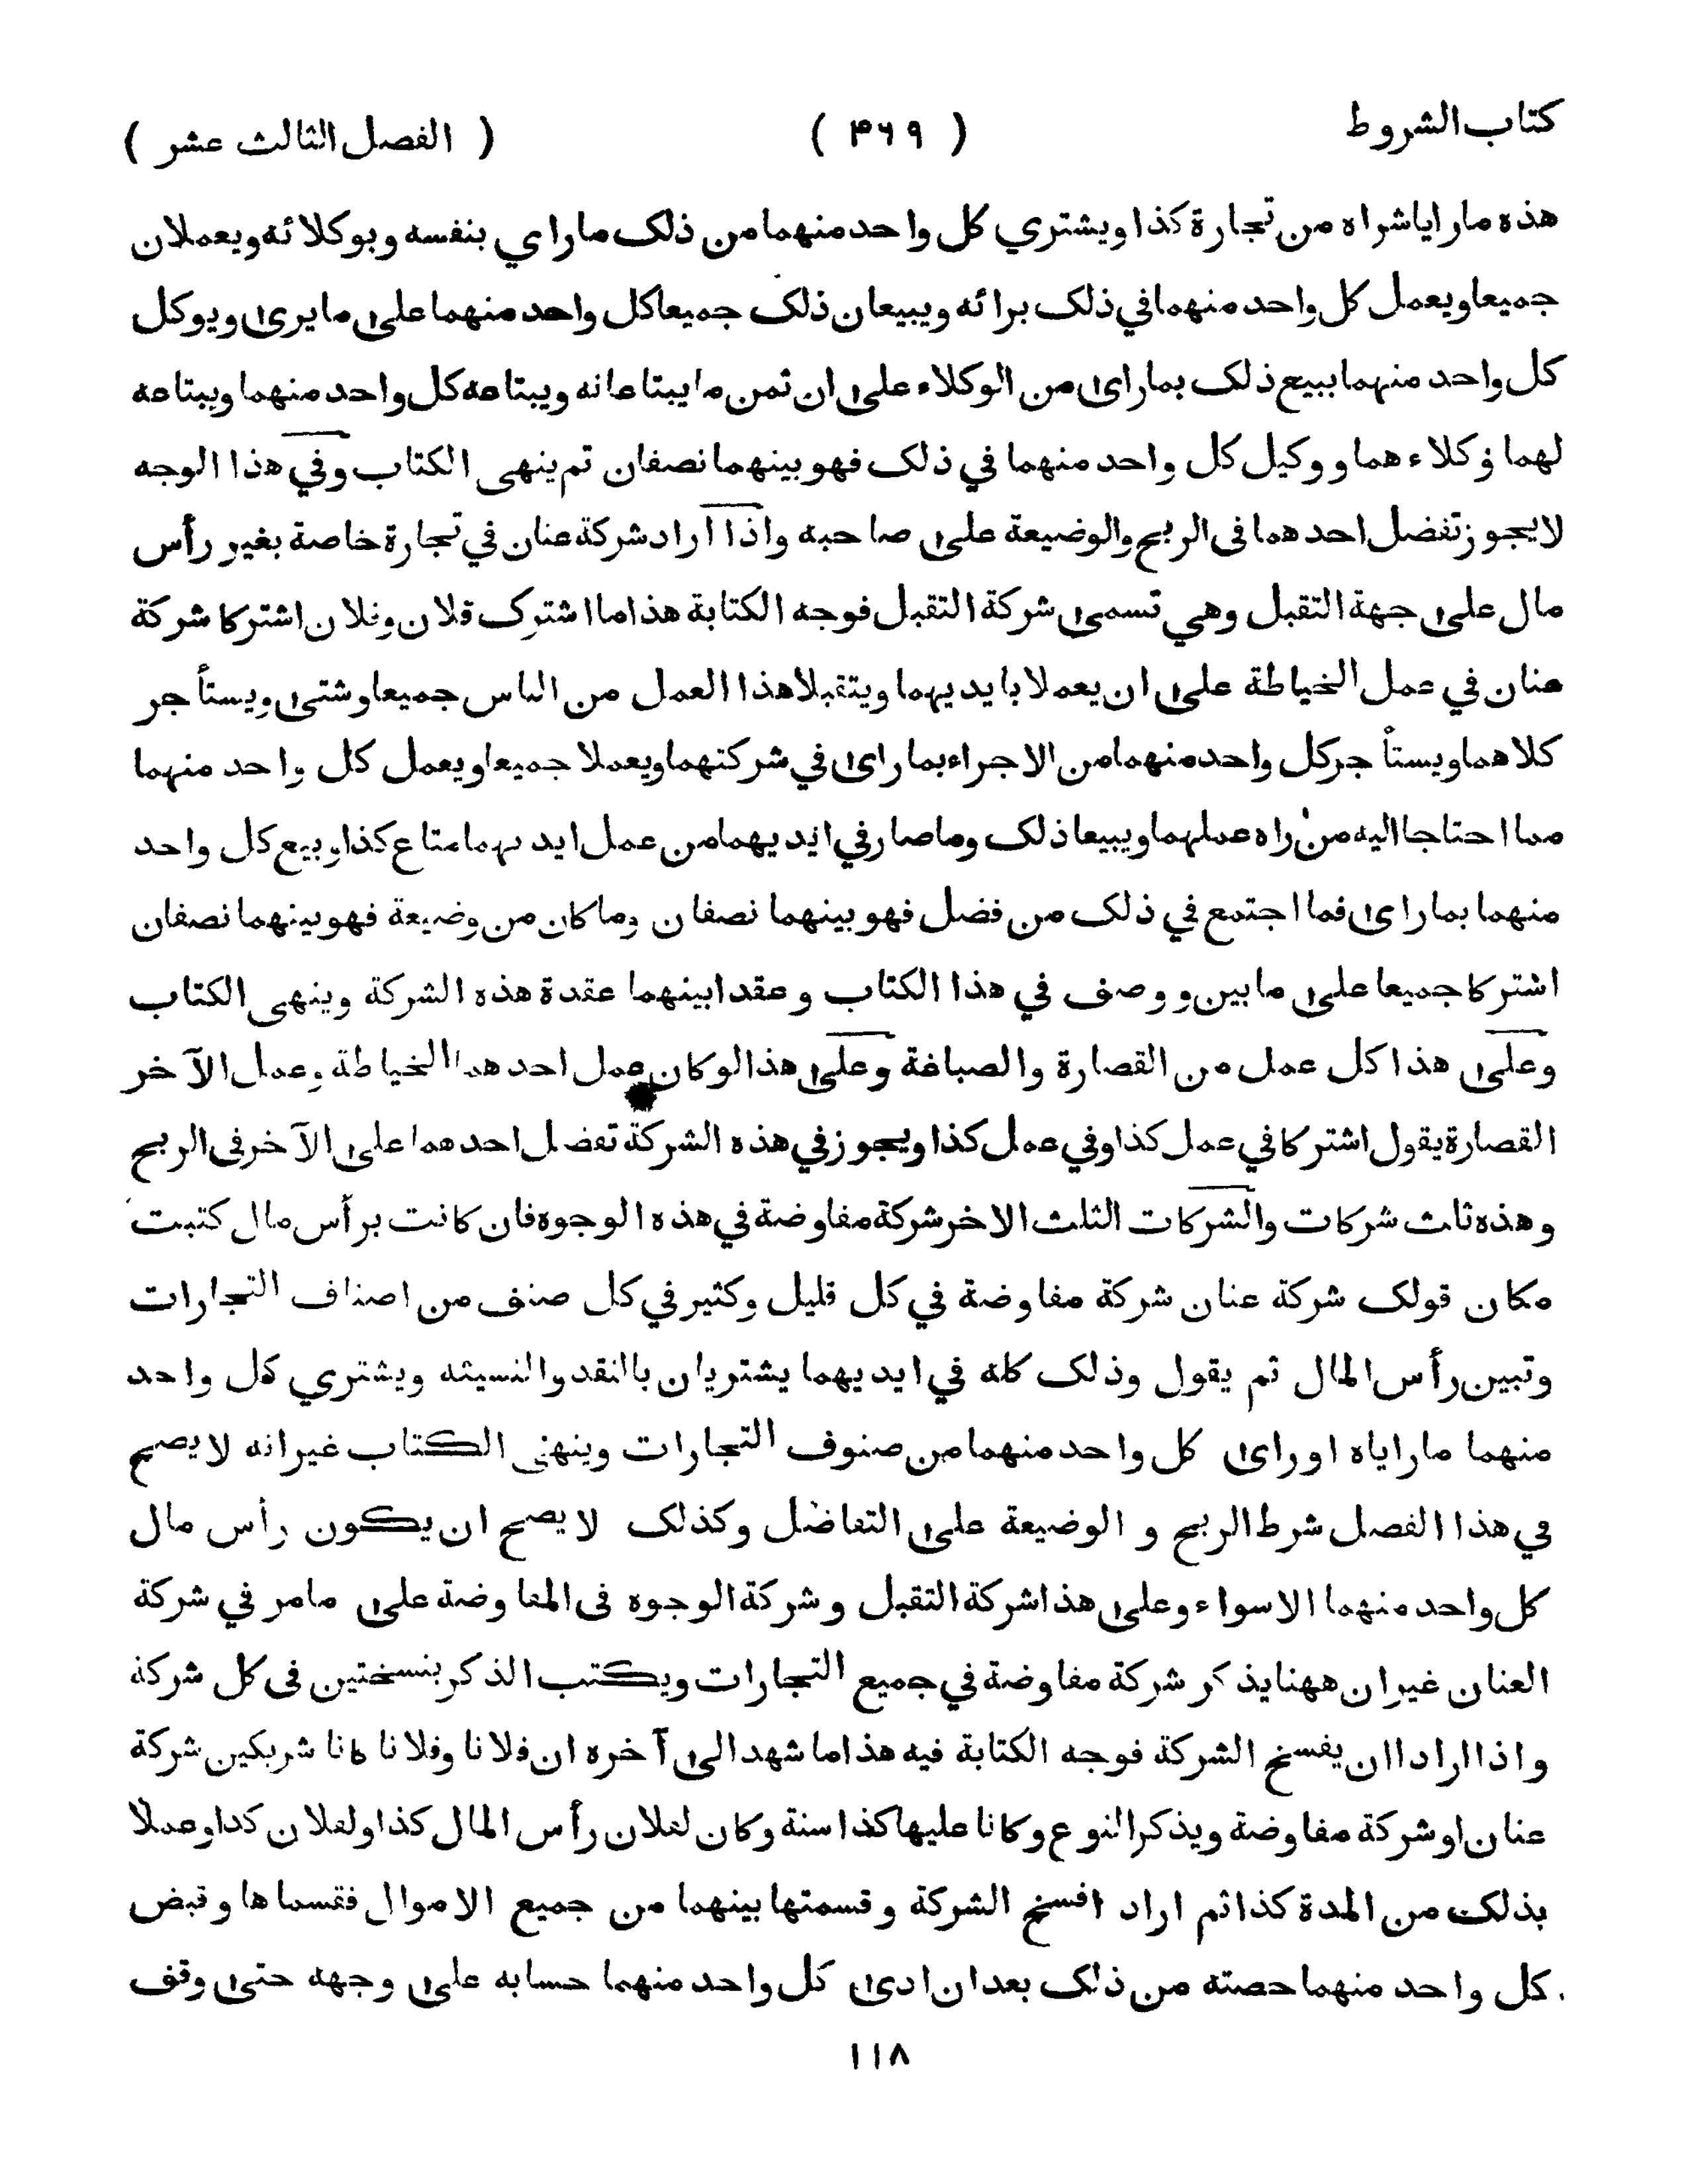 كتاب الشروط ( ٣٦٩ ) ( الفصل الثالث عشر )
هذه ما رايا شراه من تجارة كذا ويشتري كل واحد منهما من ذلك ما راي بنفسه وبوكلائه ويعملان
جميعا ويعمل كل واحد منهما في ذلك برائه ويبيعان ذلك جميعا كل واحد منهما على ما يرى ويوكل
كل واحد منهما ببيع ذلك بما راى من الوكلاء على ان ثمن ما يبتاعانه ويبتاعه كل واحد منهما ويبتاعه
لهما وكلاءهما ووكيل كل واحد منهما في ذلك فهو بينهما نصفان ثم ينهى الكتاب وفي هذا الوجه
لايجوز تفضل احدهما فى الربح والوضيعة على صاحبه واذا اراد شركة عنان في تجارة خاصة بغير رأس
مال على جهة التقبل وهي تسمى شركة التقبل فوجه الكتابة هذا ما اشترك فلان وفلان اشتركا شركة
عنان في عمل الخياطة على ان يعملا بايديهما ويتقبلا هذا العمل من الناس جميعا وشتى ويستأجر
كلاهما ويستأجر كل واحد منهما من الاجراء بما راى في شركتهما ويعملا جميعا ويعمل كل واحد منهما
مما احتاجا اليه من راه عملهما ويبيعا ذلك وما صار في ايديهما من عمل ايديهما متاع كذا وبيع كل واحد
منهما بما راى فما اجتمع في ذلك من فضل فهو بينهما نصفان وما كان من وضيعة فهو بينهما نصفان
اشتركا جميعا على ما بين ووصف في هذا الكتاب وعقدا بينهما عقدة هذه الشركة وينهى الكتاب
وعلى هذا كل عمل من القصارة والصباغة وعلى هذا لو كان عمل احدهما الخياطة وعمل الآخر
القصارة يقول اشتركا في عمل كذا وفي عمل كذا ويجوز في هذه الشركة تفضل احدهما على الآخر فى الربح
وهذه ثلث شركات والشركات الثلث الاخر شركة مفاوضة في هذه الوجوه فان كانت برأس مال كتبت
مكان قولك شركة عنان شركة مفاوضة في كل قليل وكثير في كل صنف من اصناف التجارات
وتبين رأس المال ثم يقول وذلك كله في ايديهما يشتريان بالنقد والنسيئه ويشتري كل واحد
منهما ما راياه او راى كل واحد منهما من صنوف التجارات وينهى الكتاب غير انه لا يصح
في هذا الفصل شرط الربح و الوضيعة على التفاضل وكذلك لا يصح ان يكون رأس مال
كل واحد منهما الا سواء وعلى هذا شركة التقبل وشركة الوجوه فى المفاوضة على ما مر في شركة
العنان غير ان ههنا يذكر شركة مفاوضة في جميع التجارات ويكتب الذكر بنسختين فى كل شركة
واذا ارادا ان يفسخ الشركة فوجه الكتابة فيه هذا ما شهد الى آخره ان فلانا وفلانا كانا شريكين شركة
عنان او شركة مفاوضة ويذكر النوع وكانا عليها كذا سنة وكان لفلان رأس المال كذا ولفلان كذا وعملا
بذلك من المدة كذا ثم اراد افسخ الشركة وقسمتها بينهما من جميع الاموال فقسماها وقبض
كل واحد منهما حصته من ذلك بعد ان ادى كل واحد منهما حسابه على وجهه حتى وقف
١١٨